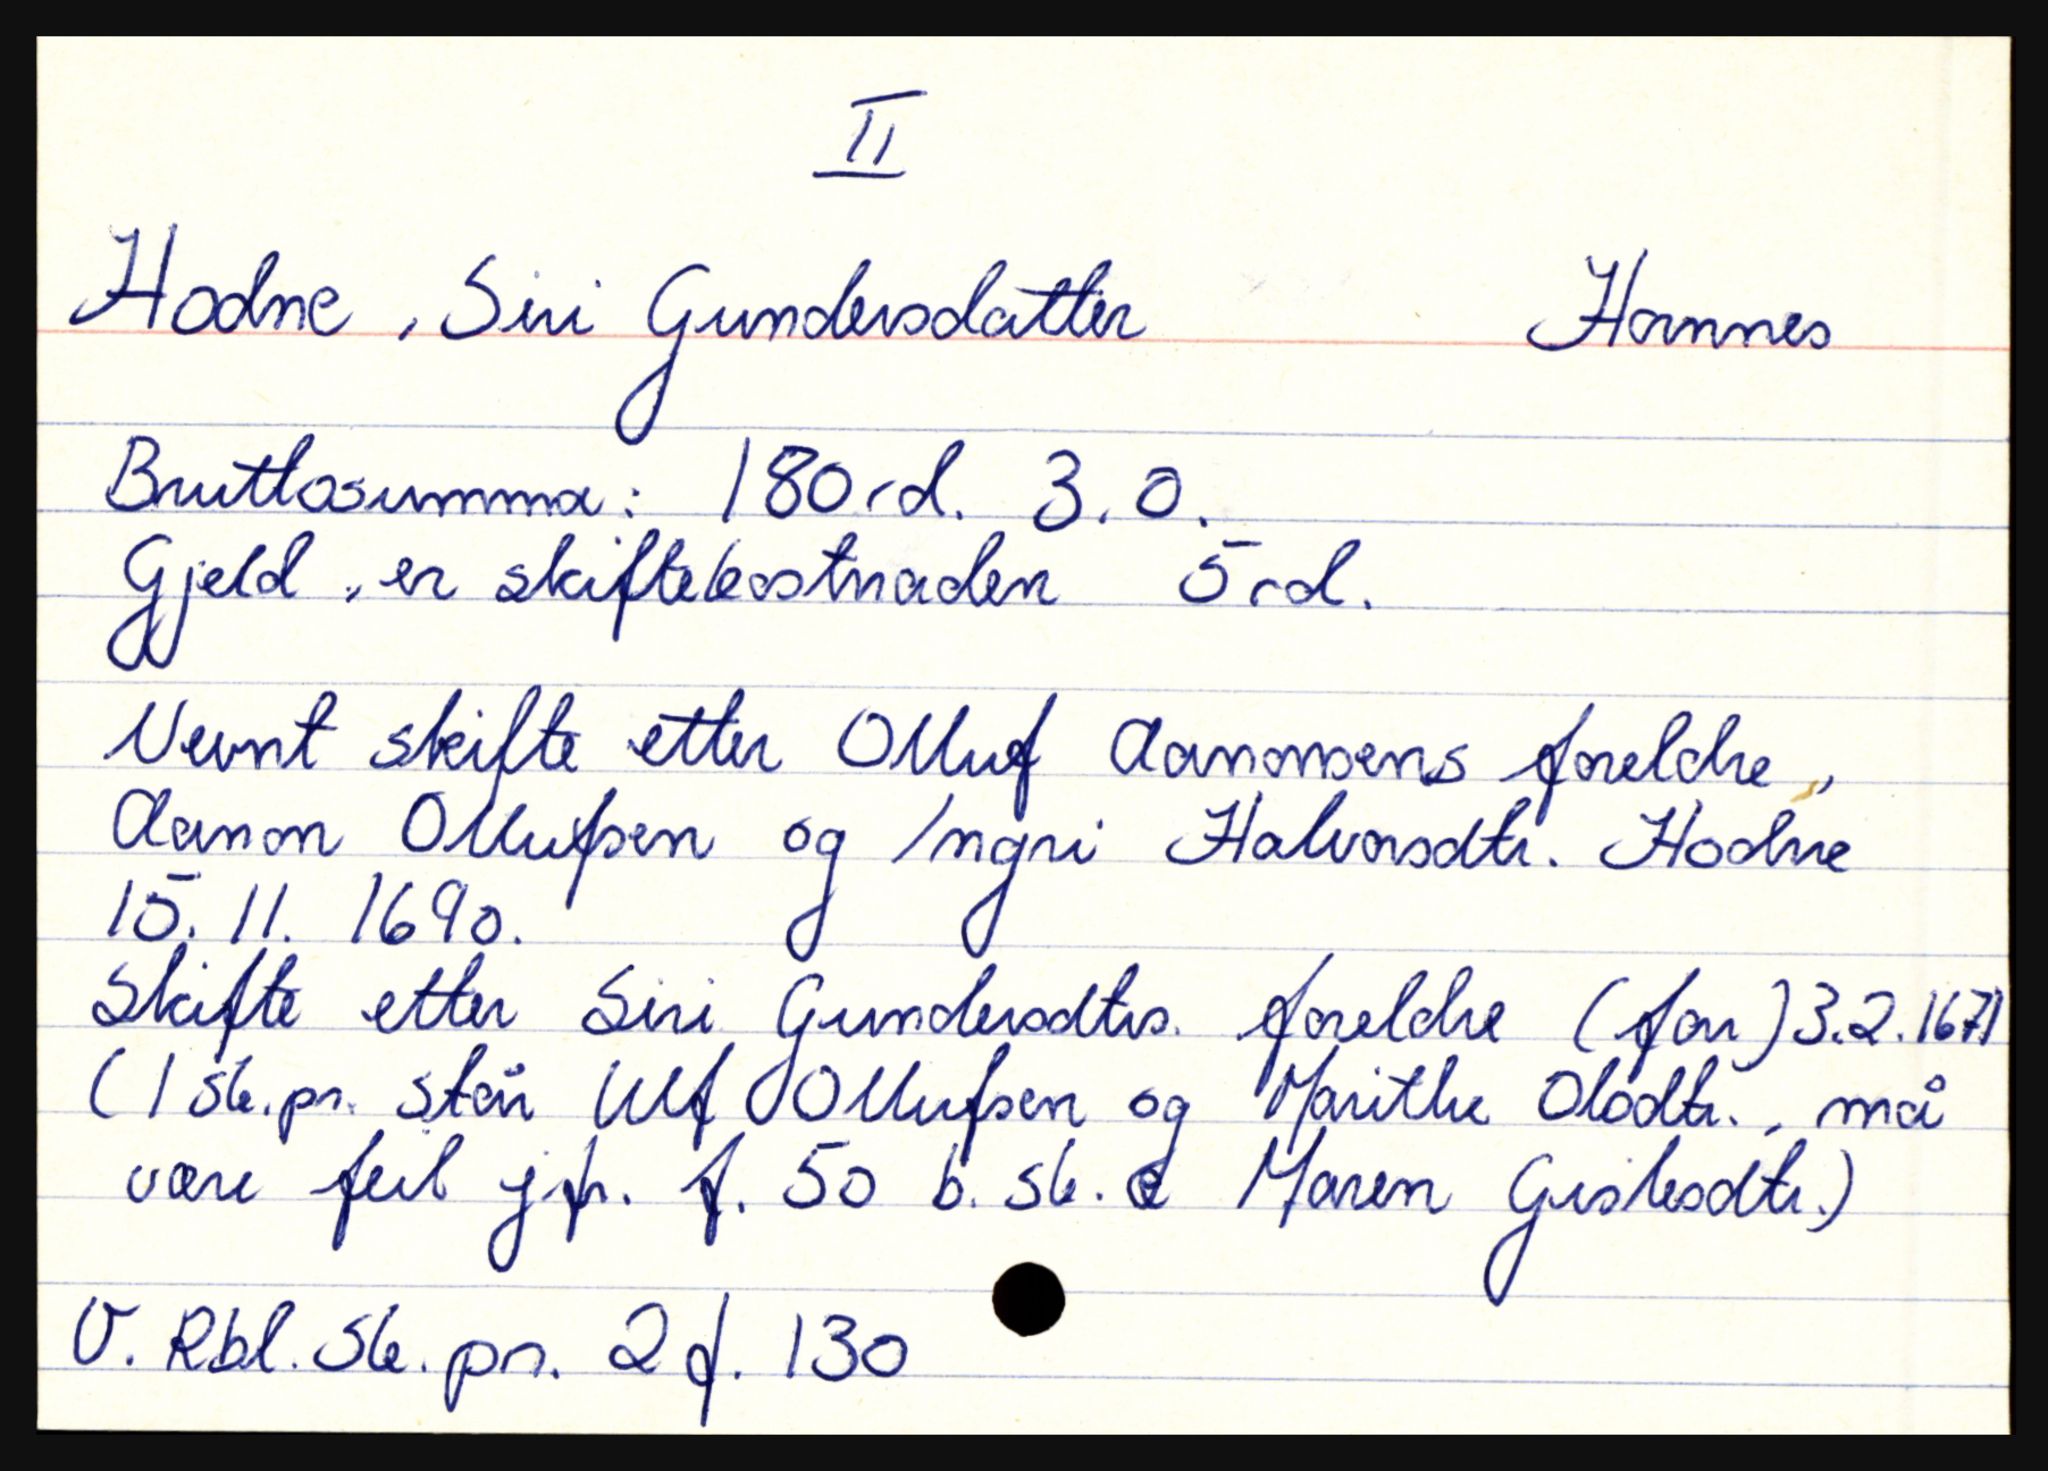 II
Hodne, Siri Gundersdatter Hornnes
Bruttosumma: 180 rd. 3. 0.
Gjeld, er skiftekostnaden 5 rd.
Nevnt skifte etter Olluf Aanonsens foreldre,
Aanon Ollufsen og Ingri Halvorsdtr. Hodne
15. 11. 1690.
Skifte etter Siri Gundersdtrs. foreldre (far) 3.2.1671
(I sk.pr. står Ulf Ollufsen og Marithe Olsdtr., må
være feil jfr. f. 50 b. sk. e Maren Gislesdtr.)
V. Rbl. Sk. pr. 2 f. 130